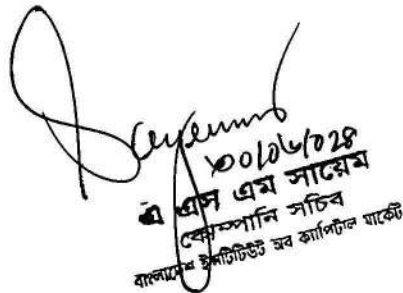 Sayem
এ এস এম সায়েম
কোম্পানি সচিব
বাংলাদেশ ইনস্টিটিউট অব ক্যাপিটাল মার্কেট